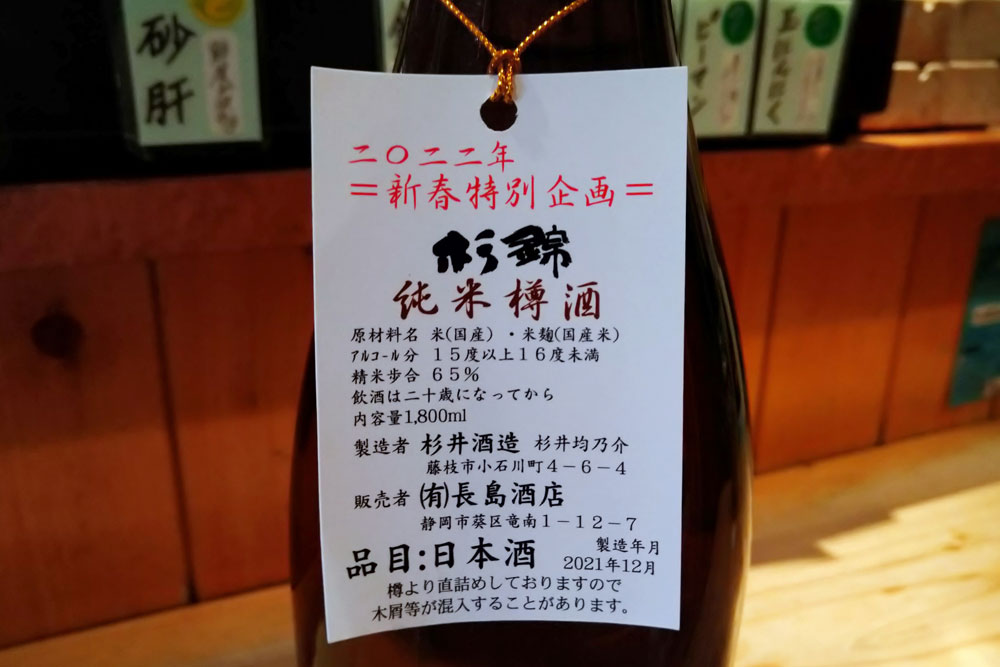 砂肝
ピーマン
にんにく
二〇二二年
＝新春特別企画＝
杉錦
純米樽酒
原材料名 米(国産)・米麹(国産米)
ｱﾙｺｰﾙ分 １５度以上１６度未満
精米歩合 ６５％
飲酒は二十歳になってから
内容量1,800ml
製造者 杉井酒造 杉井均乃介
藤枝市小石川町４－６－４
販売者 ㈲長島酒店
静岡市葵区竜南１－１２－７
品目:日本酒
製造年月
2021年12月
樽より直詰めしておりますので
木屑等が混入することがあります。